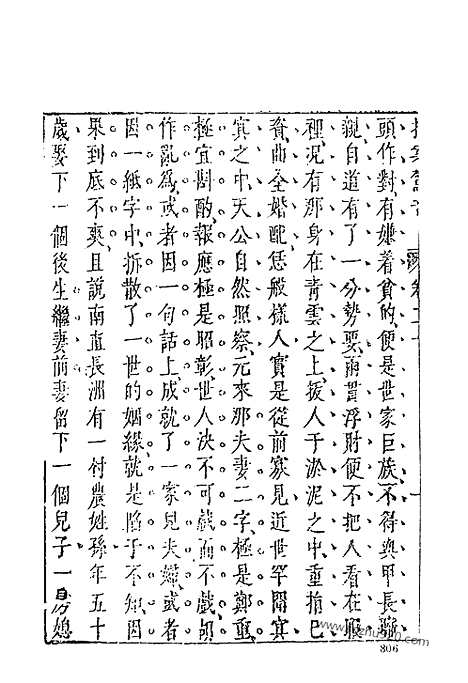 拍案驚奇 卷二十
頭作對、有嫌着貧的、便是世家巨族、不得與甲長聯
親、自道有了一分勢要、兩貫浮財、便不把人看在眼
裡、況有那身在青雲之上、拔人于淤泥之中、重捐己
資、曲全婚配、恁般樣人、實是從前寡見、近世罕聞、冥
冥之中、天公自然照察、元來那夫妻二字、極是鄭重、
極宜斟酌、報應極是昭彰、世人決不可戲而不戲、胡
作亂為、或者因一句話上、成就了一家兒夫婦、或者
因一紙字中、拆散了一世的姻緣、就是陷于不知、因
果到底不爽、且說南直長洲有一村農、姓孫、年五十
歲、娶下一個後生繼妻、前妻留下一個兒子、一房媳
806